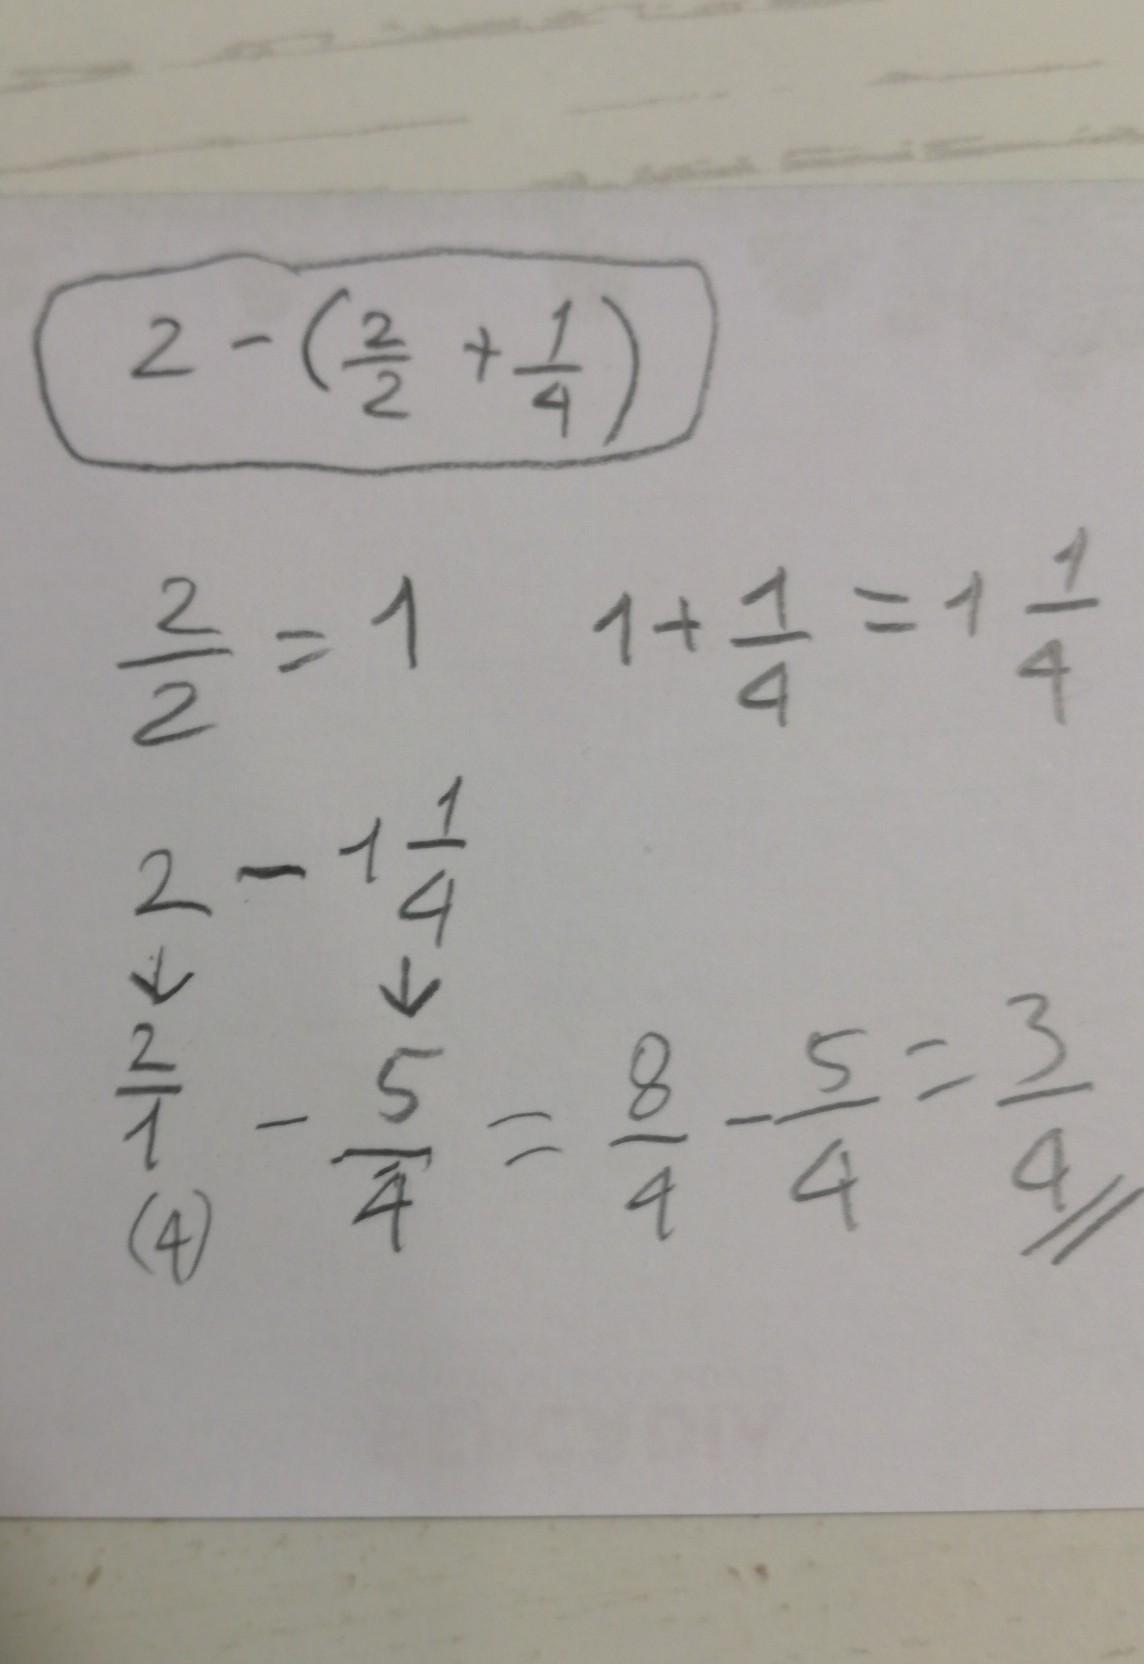 2 - (2/2 + 1/4)
2/2 = 1 1 + 1/4 = 1 1/4
2 - 1 1/4
↓ ↓
2/1 - 5/4 = 8/4 - 5/4 = 3/4 //
(4)